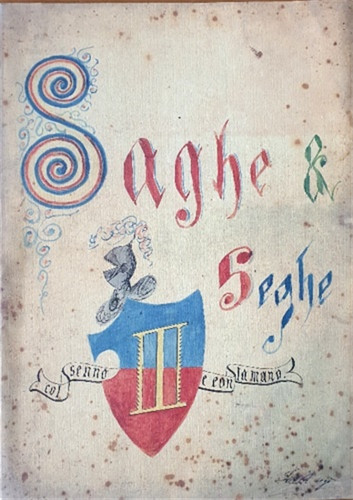 Saghe &
Seghe
II
col senno e con la mano.